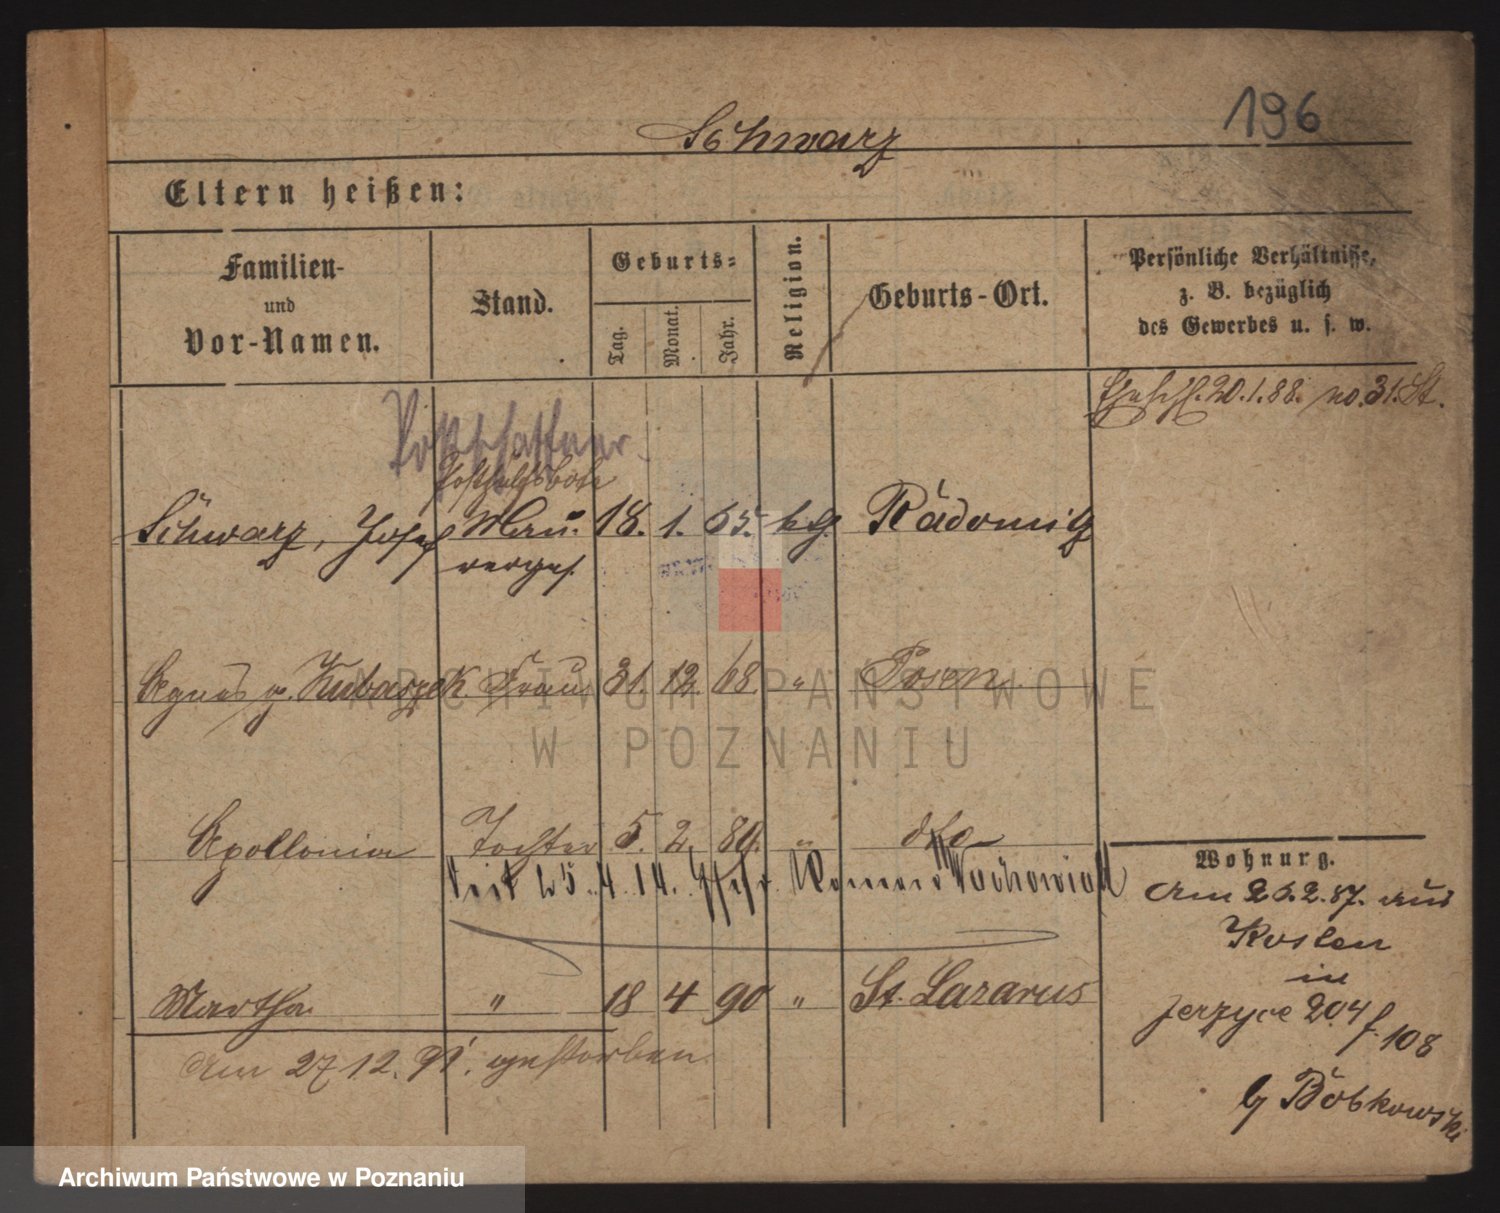 196
Schwarz
Eltern heißen:
Familien-
und
Vor-Namen.
Stand.
Geburts-
Tag.
Monat.
Jahr.
Religion.
Geburts-Ort.
Persönliche Verhältnisse,
z. B. bezüglich
des Gewerbes u. s. w.
20.1.88. no. 31. St.
Postschaffner.
Posthülfsbote
Schwarz, Josef Mau- 18. 1. 65. kth. Radomitz
rerges.
Agnes g. Kubaszek Frau 31. 12. 68. " Posen
Apollonia Tochter 5. 2. 89. " dto
seit 25. 4. 14. Ehefr. Roman Wachowiak
Martha " 18 4 90 " St. Lazarus
Am 27 12. 91. gestorben.
Wohnung.
Am 26.2.87. aus
Kosten
in
Jerzyce 204 f. 108
b Bobkowski
ARCHIWUM PAŃSTWOWE
W POZNANIU
Archiwum Państwowe w Poznaniu